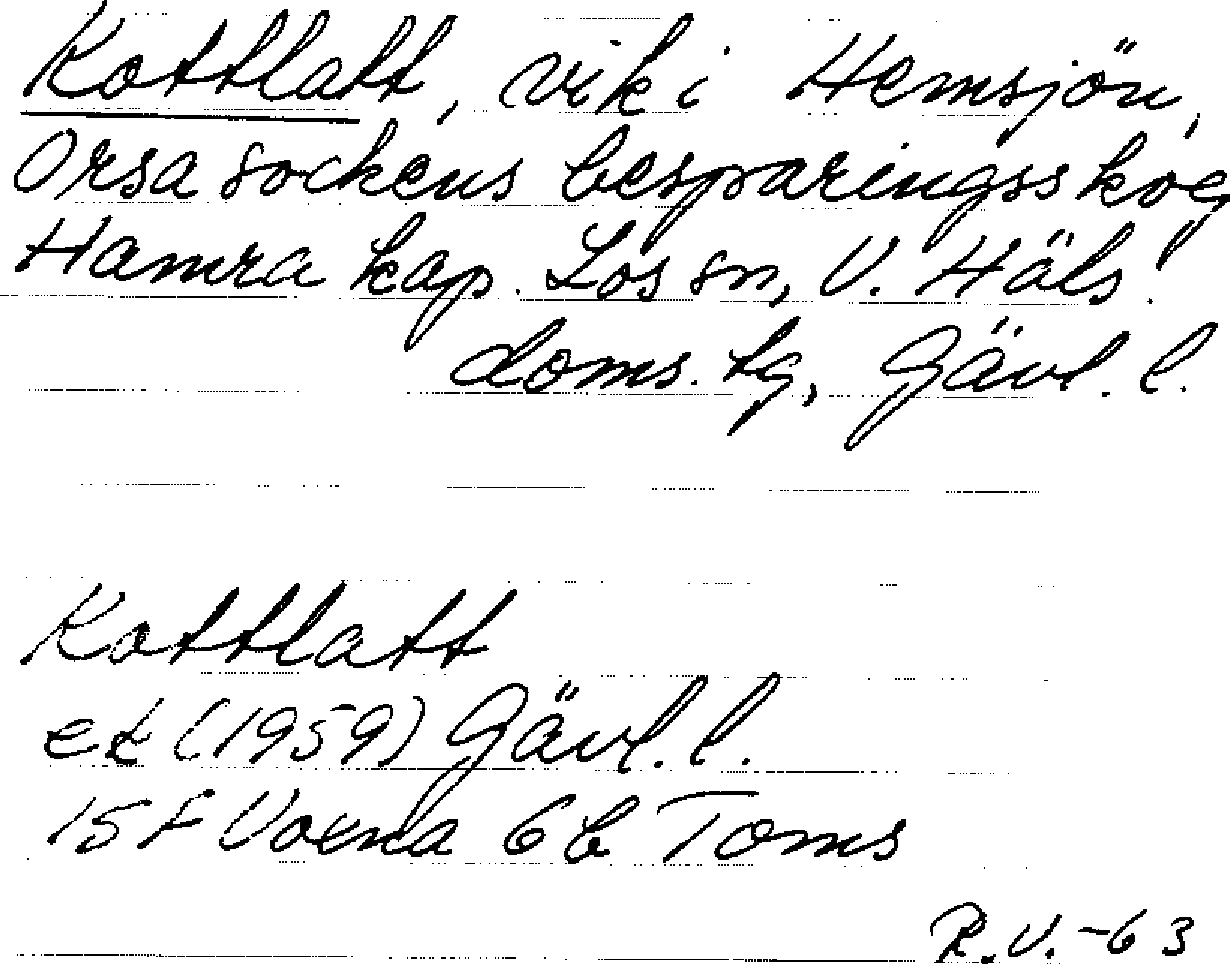 Kottlatt, vik i Hemsjön,
Orsa sockens besparingsskog
Hamra kap. Los sn, V. Häls.
doms. tg, Gävl. l.
Kottlatt
ek (1959) Gävl. l.
15 F Voxna 6 b Toms
R.V.-63